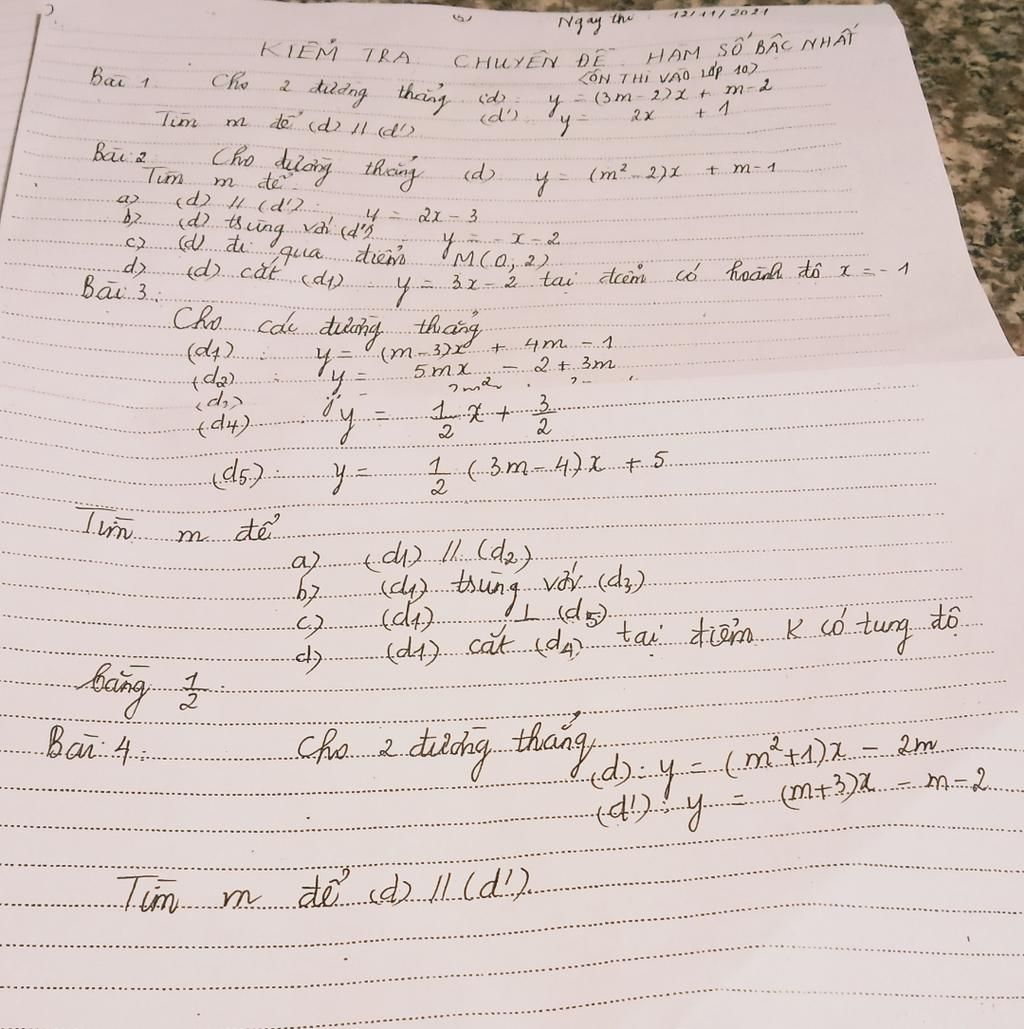 Ngay thi : 12/11/2021
KIỂM TRA CHUYÊN ĐỀ HÀM SỐ BẬC NHẤT
<ÔN THI VÀO LỚP 10>
Bài 1. Cho 2 đường thẳng (d): y = (3m-2)x + m-2
(d'): y = 2x + 1
Tìm m để (d) // (d')
Bài 2. Cho đường thẳng (d) y = (m² - 2)x + m - 1
Tìm m để
a) (d) // (d'): y = 2x - 3
b) (d) trùng với (d') y = - x - 2
c) (d) đi qua điểm M(0; 2)
d) (d) cắt (d1) y = 3x - 2 tại điểm có hoành độ x = - 1
Bài 3:
Cho các đường thẳng
(d1) : y = (m-3)x + 4m - 1
(d2) : y = 5mx - 2 + 3m
(d3)
(d4) y = 1/2 x + 3/2
(d5): y = 1/2 (3m-4)x + 5
Tìm m để
a) (d1) // (d2)
b) (d1) trùng với (d3)
c) (d1) ⊥ (d5)
d) (d1) cắt (d4) tại điểm K có tung độ
bằng 1/2
Bài 4: Cho 2 đường thẳng
(d): y = (m²+1)x - 2m
(d'): y = (m+3)x - m - 2
Tìm m để (d) // (d').